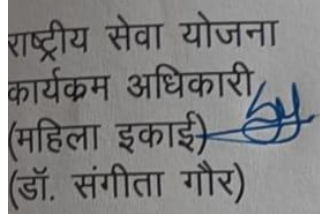 राष्ट्रीय सेवा योजना
कार्यक्रम अधिकारी
(महिला इकाई)
(डॉ. संगीता गौर)